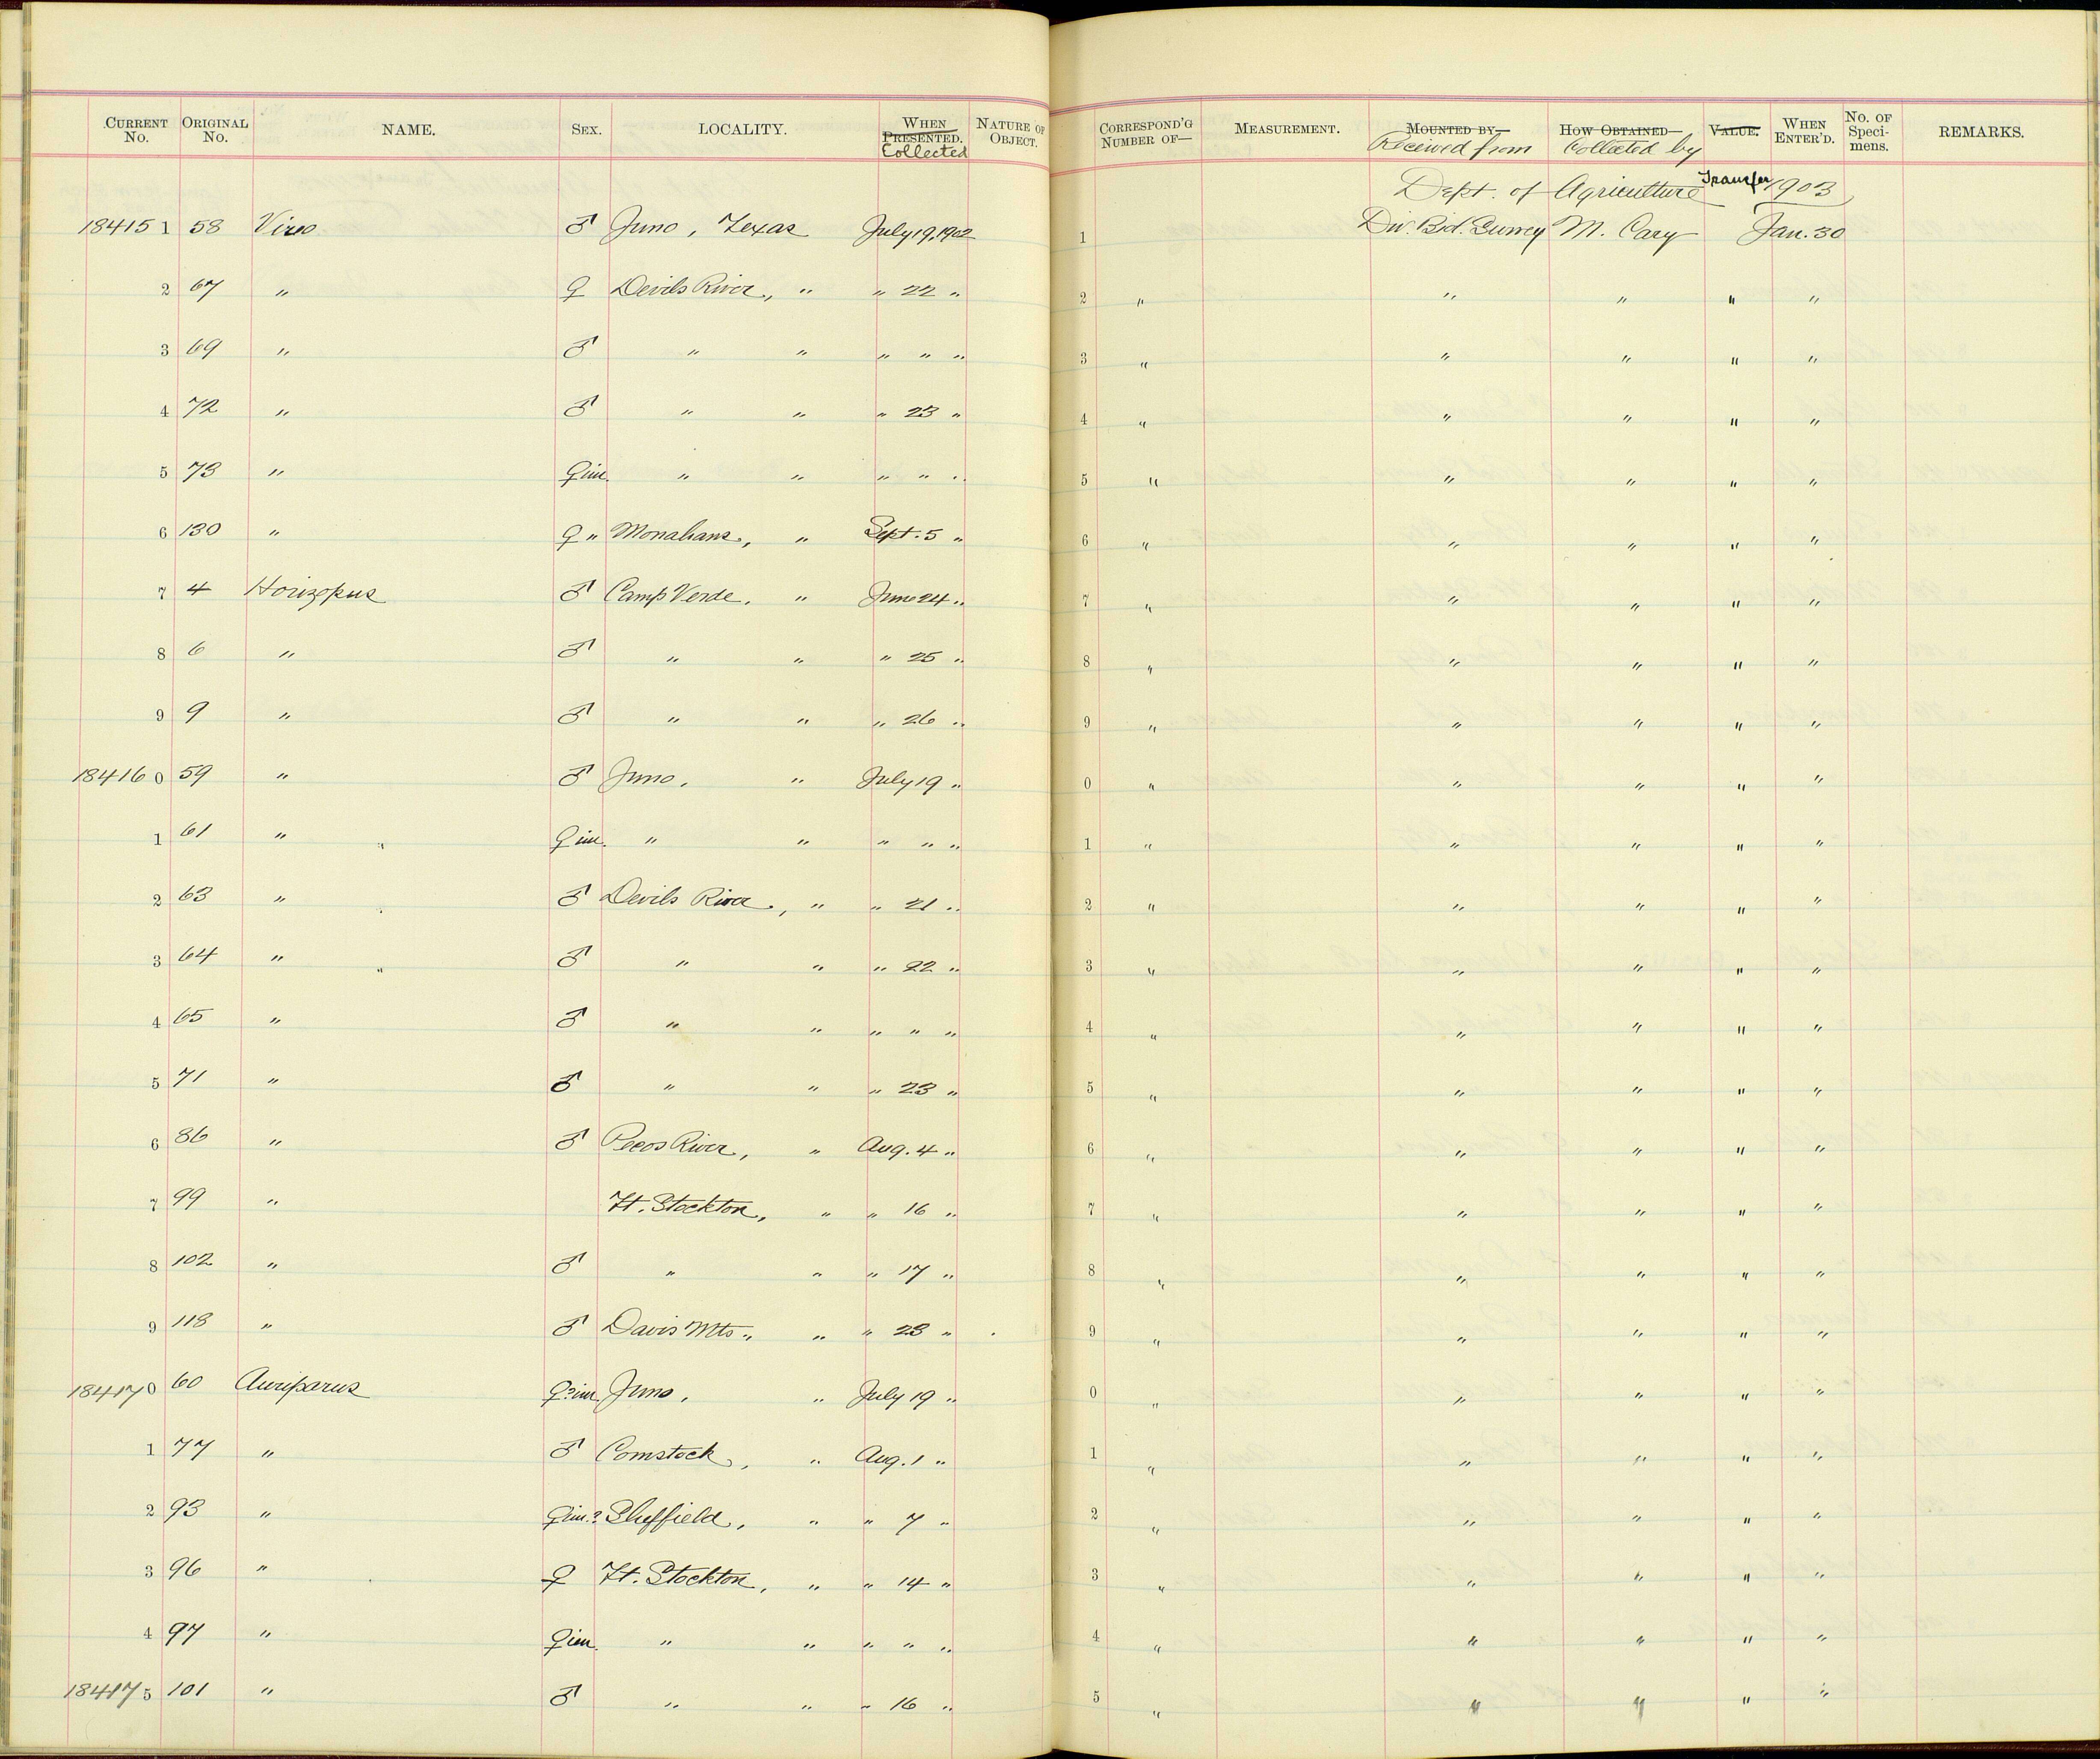 CURRENT No. ORIGINAL No. NAME. SEX. LOCALITY. WHEN PRESENTED. Collected NATURE OF OBJECT. CORRESPOND'G NUMBER OF— MEASUREMENT. MOUNTED BY— Received from HOW OBTAINED— Collected by VALUE. WHEN ENTER'D. No. OF Speci-mens. REMARKS.
Dept. of Agriculture Transfer 1903
184151 58 Vireo ♂ Juno, Texas July 19, 1902 1 Div. Biol. Survey M. Cary Jan. 30
2 67 " ♀ Devils River, " " 22 " 2 " " " " "
3 69 " ♂ " " " " " 3 " " " " "
4 72 " ♂ " " " 23 " 4 " " " " "
5 73 " ♀ im. " " " " " 5 " " " " "
6 130 " ♀ " Monahans, " Sept. 5 " 6 " " " " "
7 4 Horizopus ♂ Camp Verde, " June 24 " 7 " " " " "
8 6 " ♂ " " " 25 " 8 " " " " "
9 9 " ♂ " " " 26 " 9 " " " " "
184160 59 " ♂ Juno, " July 19 " 0 " " " " "
1 61 " " ♀ im. " " " " " 1 " " " " "
2 63 " ♂ Devils River, " " 21 " 2 " " " " "
3 64 " " ♂ " " " 22 " 3 " " " " "
4 65 " ♂ " " " " " 4 " " " " "
5 71 " ♂ " " " 23 " 5 " " " " "
6 86 " ♂ Pecos River, " Aug. 4 " 6 " " " " "
7 99 " Ft. Stockton, " " 16 " 7 " " " " "
8 102 " ♂ " " " 17 " 8 " " " " "
9 118 " ♂ Davis Mts., " " 23 " 9 " " " " "
184170 60 Auriparus ♀? im. Juno, " July 19 " 0 " " " " "
1 77 " ♂ Comstock, " Aug. 1 " 1 " " " " "
2 93 " ♀ im.? Sheffield, " " 7 " 2 " " " " "
3 96 " ♀ Ft. Stockton, " " 14 " 3 " " " " "
4 97 " ♀ im. " " " " " 4 " " " " "
184175 101 " ♂ " " " 16 " 5 " " " " "